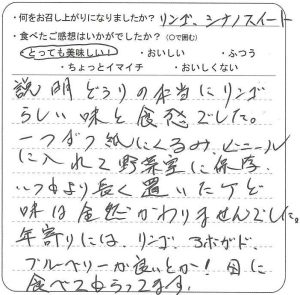 ・何をお召し上がりになりましたか？ リンゴ、シナノスイート
・食べたご感想はいかがでしたか？（○で囲む）
・とっても美味しい！ ・おいしい ・ふつう
・ちょっとイマイチ ・おいしくない
説明どうりの本当にリンゴ
らしい味と食感でした。
一つずつ紙にくるみ、ビニール
に入れて野菜室に保存、
いつもより長く置いたケド
味は全然かわりませんでした。
年寄りには、リンゴ、アボガド、
ブルーベリーが良いとか！ 母に
食べてもらってます。